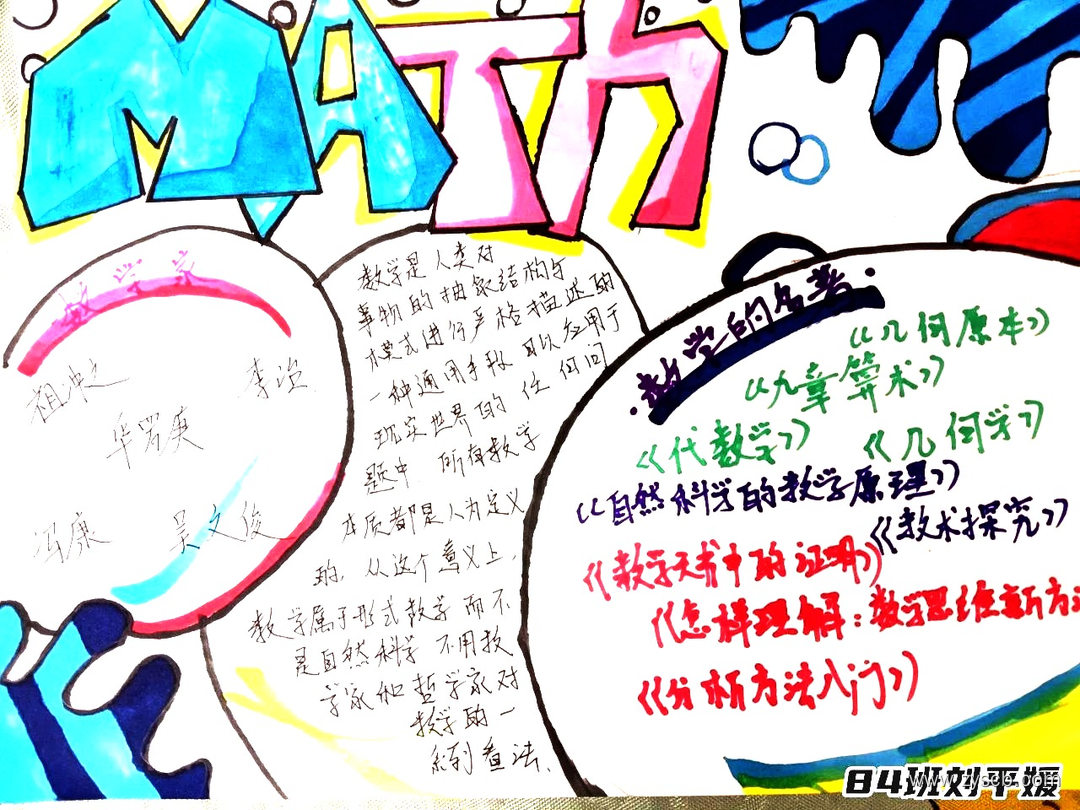 MATH
数学家
祖冲之
李冶
华罗庚
冯康
吴文俊
数学是人类对
事物的抽象结构与
模式进行严格描述的
一种通用手段 可以应用于
现实世界的任何问
题中 所有数学
本质都是人为定义
的，从这个意义上，
数学属于形式数学而不
是自然科学 不用数
学家和哲学家对
数学的一
系列看法、
数学的名著
《几何原本》
《九章算术》
《代数学》
《几何学》
《自然科学的数学原理》
《数术探究》
《数学天书中的证明》
《怎样理解：数学思维新方法
《分析方法入门》
84班刘平媛